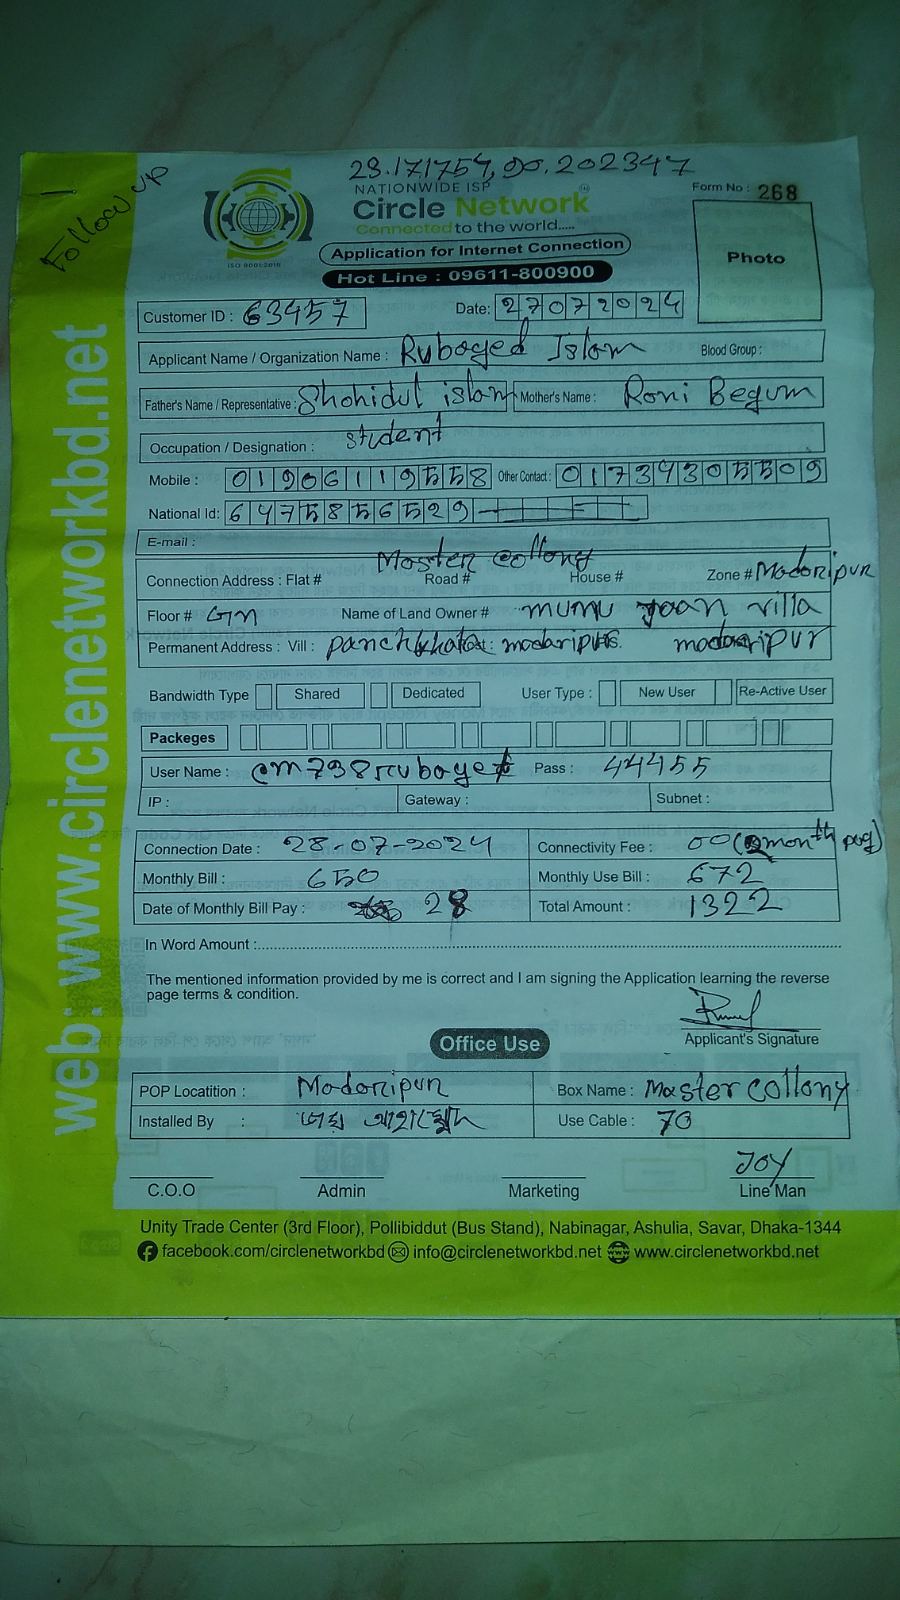 23.171757, 90.202347
Follow up
NATIONWIDE ISP
Circle Network
Connected to the world.....
ISO 9001:2015
Form No : 268
Application for Internet Connection
Hot Line : 09611-800900
Photo
Customer ID : 63457 Date: 27072024
Applicant Name / Organization Name : Rubayed Islam Blood Group :
Father's Name / Representative : Shohidul islam Mother's Name : Roni Begum
Occupation / Designation : student
Mobile : 01906119558 Other Contact : 01734305509
National Id: 6475856529
E-mail :
Master Collony
Connection Address : Flat # Road # House # Zone # Madaripur
Floor # Gn Name of Land Owner # munu jaan villa
Permanent Address : Vill : panchkhola modaripur modaripur
Bandwidth Type Shared Dedicated User Type : New User Re-Active User
Packeges
User Name : cm798rubayet Pass : 44455
IP : Gateway : Subnet :
Connection Date : 28-07-2024 Connectivity Fee : 00 (2month pay)
Monthly Bill : 650 Monthly Use Bill : 672
Date of Monthly Bill Pay : 28 Total Amount : 1322
In Word Amount :
The mentioned information provided by me is correct and I am signing the Application learning the reverse
page terms & condition.
Applicant's Signature
Office Use
POP Locatition : Madaripur Box Name : Master Collony
Installed By : জয় Use Cable : 70
JOY
C.O.O Admin Marketing Line Man
Unity Trade Center (3rd Floor), Pollibiddut (Bus Stand), Nabinagar, Ashulia, Savar, Dhaka-1344
facebook.com/circlenetworkbd info@circlenetworkbd.net www.circlenetworkbd.net
web: www.circlenetworkbd.net